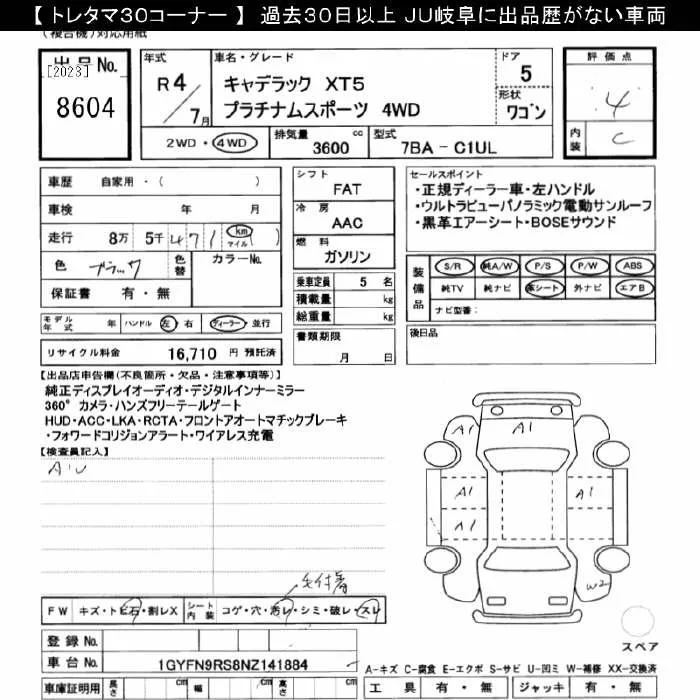 【 トレタマ30コーナー 】 過去30日以上 JU岐阜に出品歴がない車両
(複合機)対応用紙
出品No.
[2023]
8604
年式
R4/7月
車名・グレード
キャデラック XT5
プラチナムスポーツ 4WD
ドア
5
形状
ワゴン
評価点
4
内装
C
2WD・4WD
排気量
3600 cc
型式
7BA - C1UL
車歴 自家用・( )
車検 年 月
走行 8万 5千 471 km マイル ( )
色 ブラック 色替 カラーNo.
保証書 有・無
モデル年式 年 ハンドル 左 右 ディーラー・並行
リサイクル料金 16,710 円 預託済
シフト
FAT
冷房
AAC
燃料
ガソリン
乗車定員 5 名
積載量 kg
総重量 kg
書類期限
月 日
セールスポイント
・正規ディーラー車・左ハンドル
・ウルトラビューパノラミック電動サンルーフ
・黒革エアーシート・BOSEサウンド
装備品
S/R 純A/W P/S P/W ABS
純TV 純ナビ 革シート 外ナビ エアB
ナビ型番:
後日品
【出品店申告欄(不良箇所・欠品・注意事項等)】
純正ディスプレイオーディオ・デジタルインナーミラー
360° カメラ・ハンズフリーテールゲート
HUD・ACC・LKA・RCTA・フロントアオートマチックブレーキ
・フォワードコリジョンアラート・ワイアレス充電
【検査員記入】
AU
A1 A1
A1 A1
A1
W2
スペア
FW キズ・トビ石・割レX シート内装 コゲ・穴・汚レ・シミ・破レ・スレ
登録No.
車台No. 1GYFN9RS8NZ141884
車庫証明用 長さ cm 幅 cm 高さ cm
A-キズ C-腐食 E-エクボ S-サビ U-凹ミ W-補修 XX-交換済
工具 有・無 ジャッキ 有・無